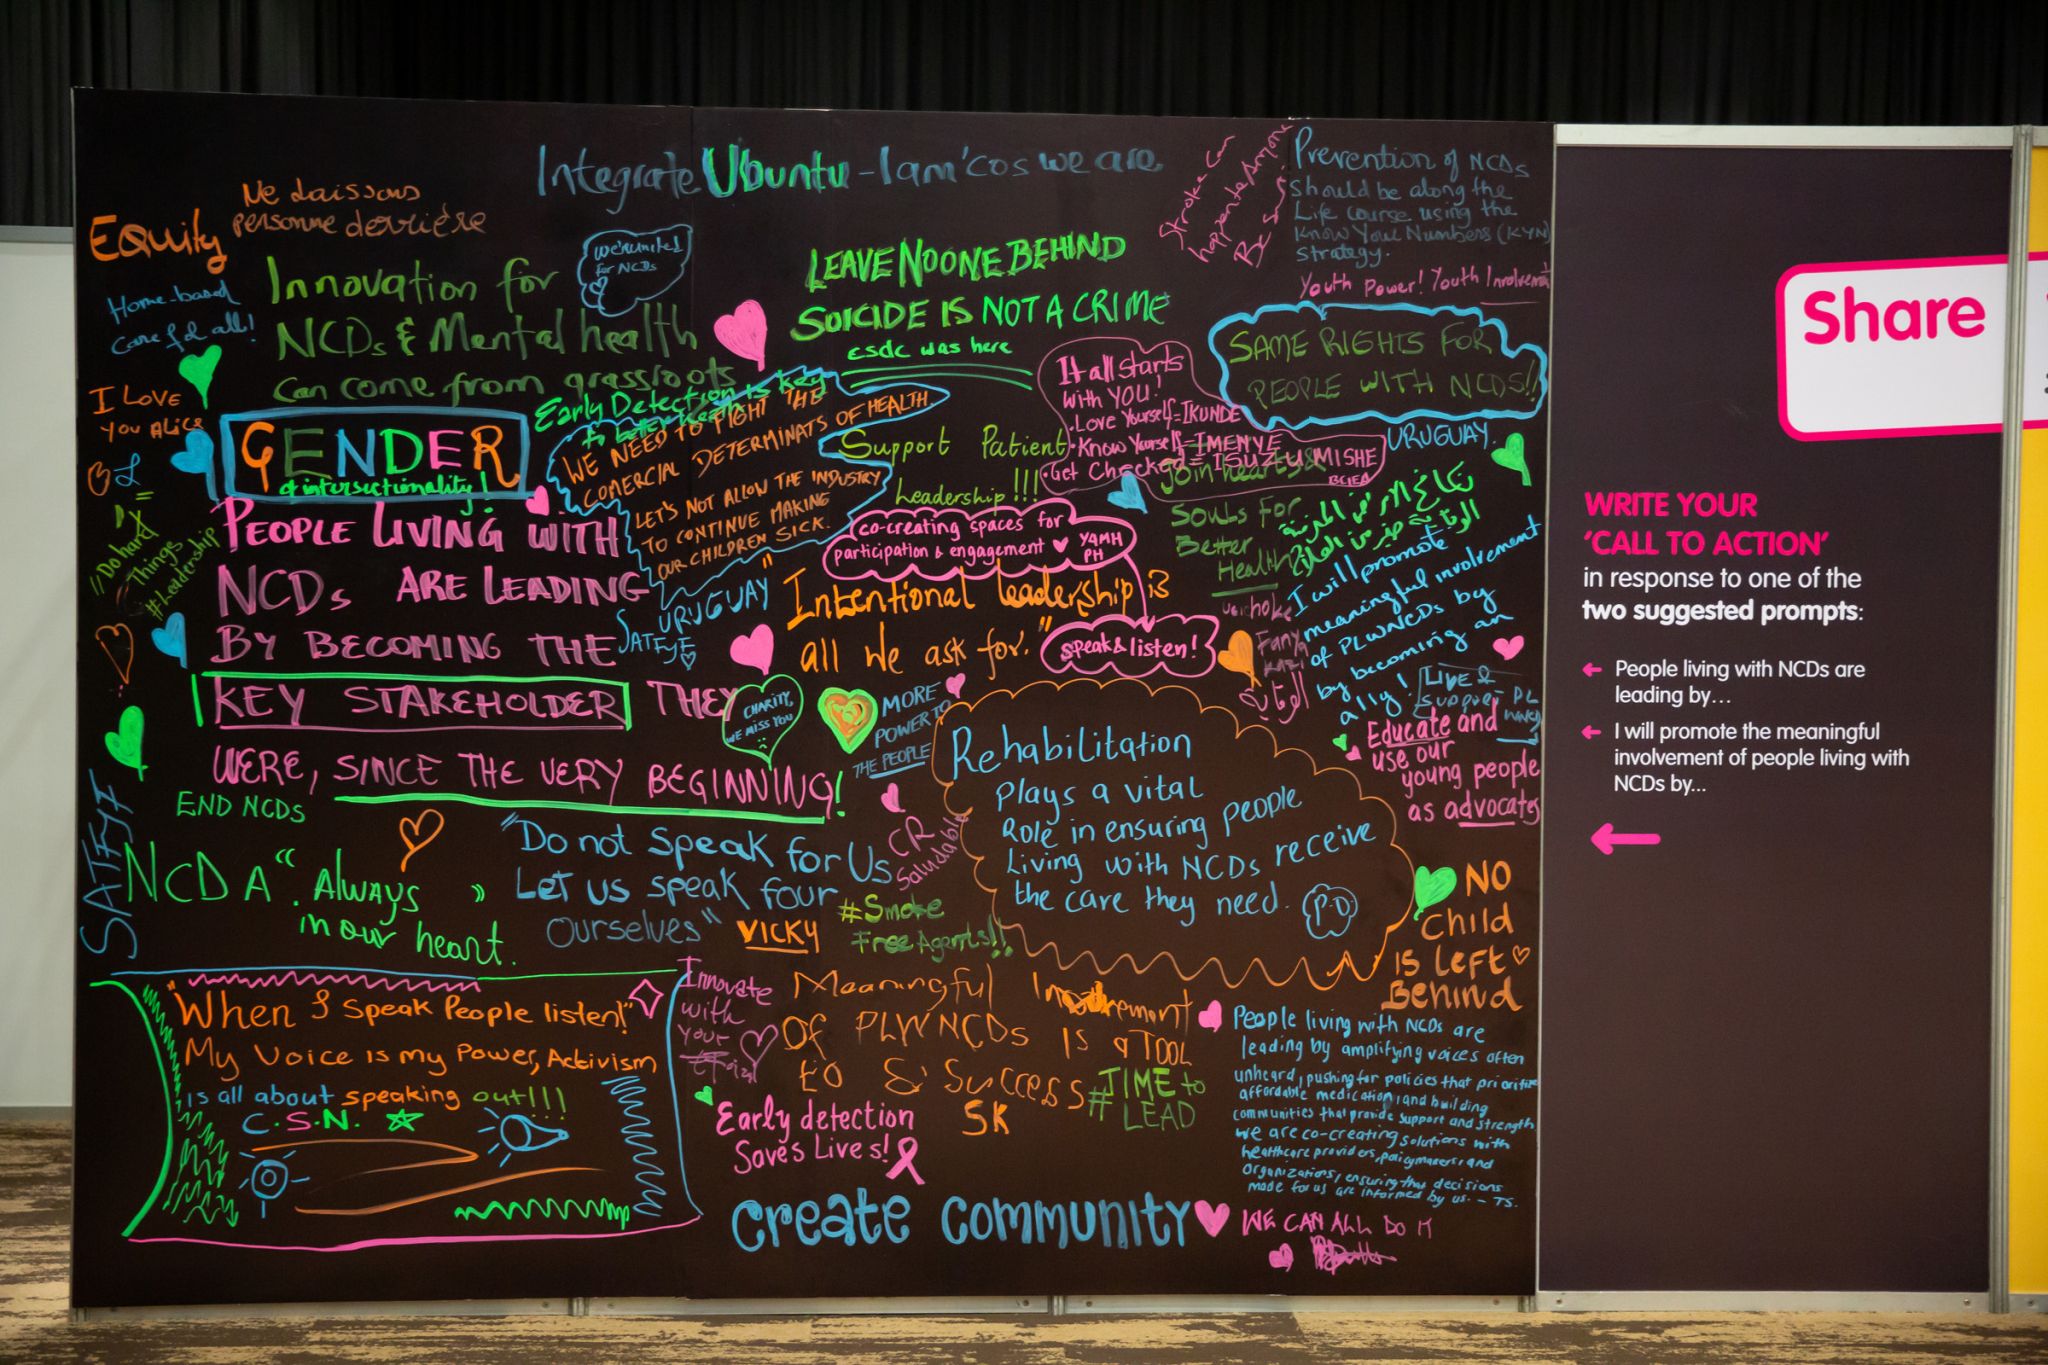 Integrate Ubuntu - I am 'cos we are
Ne Laissons
personne derrière
Equity
Home-based
Care for all!
I LOVE
YOU ALICE
"Do hard
Things
#Leadership
Innovation for
NCDs & Mental health
Can come from grassroots
We're united
for NCDs
LEAVE NO ONE BEHIND
SUICIDE IS NOT A CRIME
csdc was here
Stroke Can
happen to Anyone
Be Smart
Prevention of NCDs
should be along the
Life course using the
Know Your Numbers (KYN)
Strategy.
Youth Power! Youth Involvement
SAME RIGHTS FOR
PEOPLE WITH NCDS!!
URUGUAY.
It all starts
with YOU!
• Love Yourself = IKUNDE
• Know Yourself = IMENYE
• Get Checked = ISUZUMISHE
Early Detection is key
WE NEED TO FIGHT THE
COMERCIAL DETERMINATS OF HEALTH.
LET'S NOT ALLOW THE INDUSTRY
TO CONTINUE MAKING
OUR CHILDREN SICK.
URUGUAY"
SATFYF
Support Patient
Leadership!!!
GENDER
& intersectionality!
PEOPLE LIVING WITH
NCDs ARE LEADING
BY BECOMING THE
KEY STAKEHOLDER THEY
WERE, SINCE THE VERY BEGINNING!
co-creating spaces for
participation & engagement YAMH
PH
speak & listen!
Intentional leadership is
all we ask for."
Join hearts &
Souls For
Better
Health
الوقاية خير من العلاج
I will promote
meaningful involvement
of PLWNCDs by
by becoming an
ally!
LIVE &
Support PL
WNCD
Fanya
Kazi
CHARITY,
WE MISS YOU
MORE
POWER TO
THE PEOPLE
Educate and
use our
young people
as advocates
Rehabilitation
Plays a vital
Role in ensuring people
Living with NCDs receive
the care they need.
P.D
END NCDS
SATFYF
NCDA "Always
in our heart.
"Do not speak for Us
Let us speak four
Ourselves"
VICKY
CR
Saludable
#Smoke
Free Agents!!
NO
Child
is Left
Behind
"When I speak People listen!"
My Voice is my Power, Activism
is all about speaking out!!!
C.S.N.
Innovate
with
your
Meaningful Involvement
Of PLWNCDs is a TOOL
to & Success
SK
#TIME to
# LEAD
Early detection
Saves Lives!
Create community
People living with NCDs are
leading by amplifying voices often
unheard, pushing for policies that prioritize
affordable medication, and building
communities that provide support and strength
we are co-creating solutions with
healthcare providers, policymakers, and
organizations, ensuring that decisions
made for us are informed by us. - TS.
WE CAN ALL DO IT
Share
WRITE YOUR
'CALL TO ACTION'
in response to one of the
two suggested prompts:
People living with NCDs are
leading by...
I will promote the meaningful
involvement of people living with
NCDs by...